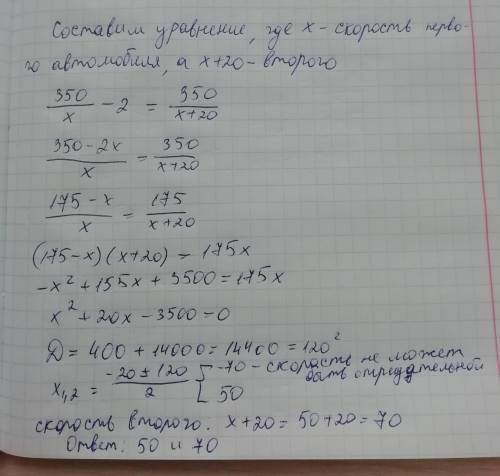 Составим уравнение, где x - скорость перво-
го автомобиля, а x+20 - второго
350/x - 2 = 350/(x+20)
(350-2x)/x = 350/(x+20)
(175-x)/x = 175/(x+20)
(175-x)(x+20) = 175x
-x² + 155x + 3500 = 175x
x² + 20x - 3500 = 0
Д = 400 + 14000 = 14400 = 120²
x₁,₂ = (-20 ± 120)/2 [ -70 - скорость не может
быть отрицательной
50
скорость второго: x+20 = 50+20 = 70
Ответ: 50 и 70